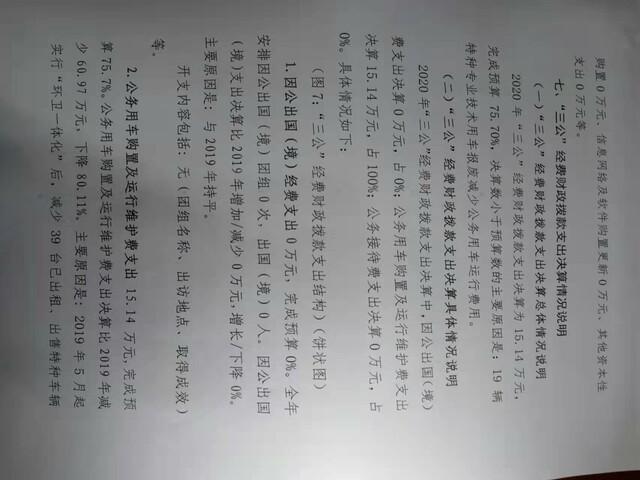 购置 0 万元，信息网络及软件购置更新 0 万元，其他资本性
支出 0 万元等。
七、“三公”经费财政拨款支出决算情况说明
（一）“三公”经费财政拨款支出决算总体情况说明
2020 年“三公”经费财政拨款支出决算为 15.14 万元，
完成预算 75.70%，决算数小于预算数的主要原因是：19 辆
特种专业技术用车报废减少公务用车运行费用。
（二）“三公”经费财政拨款支出决算具体情况说明
2020 年“三公”经费财政拨款支出决算中，因公出国（境）
费支出决算 0 万元，占 0%；公务用车购置及运行维护费支出
决算 15.14 万元，占 100%；公务接待费支出决算 0 万元，占
0%。具体情况如下：
（图 7：“三公”经费财政拨款支出结构）（饼状图）
1.因公出国（境）经费支出 0 万元，完成预算 0%。全年
安排因公出国（境）团组 0 次，出国（境）0 人。因公出国
（境）支出决算比 2019 年增加/减少 0 万元，增长/下降 0%。
主要原因是：与 2019 年持平。
开支内容包括：无（团组名称、出访地点、取得成效）
等。
2.公务用车购置及运行维护费支出 15.14 万元,完成预
算 75.7%。公务用车购置及运行维护费支出决算比 2019 年减
少 60.97 万元，下降 80.11%。主要原因是：2019 年 5 月起
实行“环卫一体化”后，减少 39 台已出租、出售特种车辆